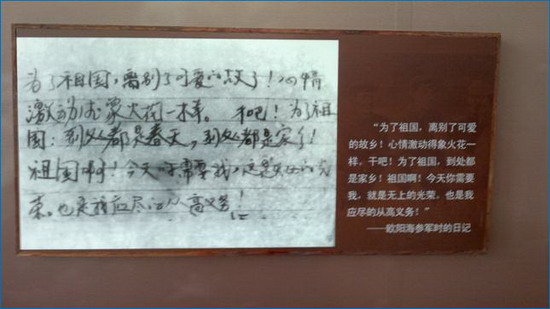 为了祖国，离别了可爱的！心情
激动得象火花一样。干吧！为了祖
国：到处都是春天，到处都是家乡！
祖国啊！今天你需要我，这是无上的光
荣。也是我应尽的从高义务！
“为了祖国，离别了可爱
的故乡！心情激动得象火花一
样，干吧！为了祖国，到处都
是家乡！祖国啊！今天你需要
我，就是无上的光荣，也是我
应尽的从高义务！”
——欧阳海参军时的日记